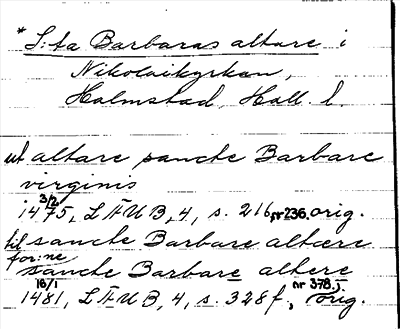 * S:ta Barbaras altare i
Nikolaikyrkan,
Halmstad, Hall. l.
ut altare sancte Barbare
virginis
3/2
i 1475, LÄUB, 4, s. 216, nr 236, orig.
til sancte Barbare altære
for:ne
sancte Barbare altere
16/1 nr 378.j.
1481, LÄUB, 4, s. 328 f., orig.